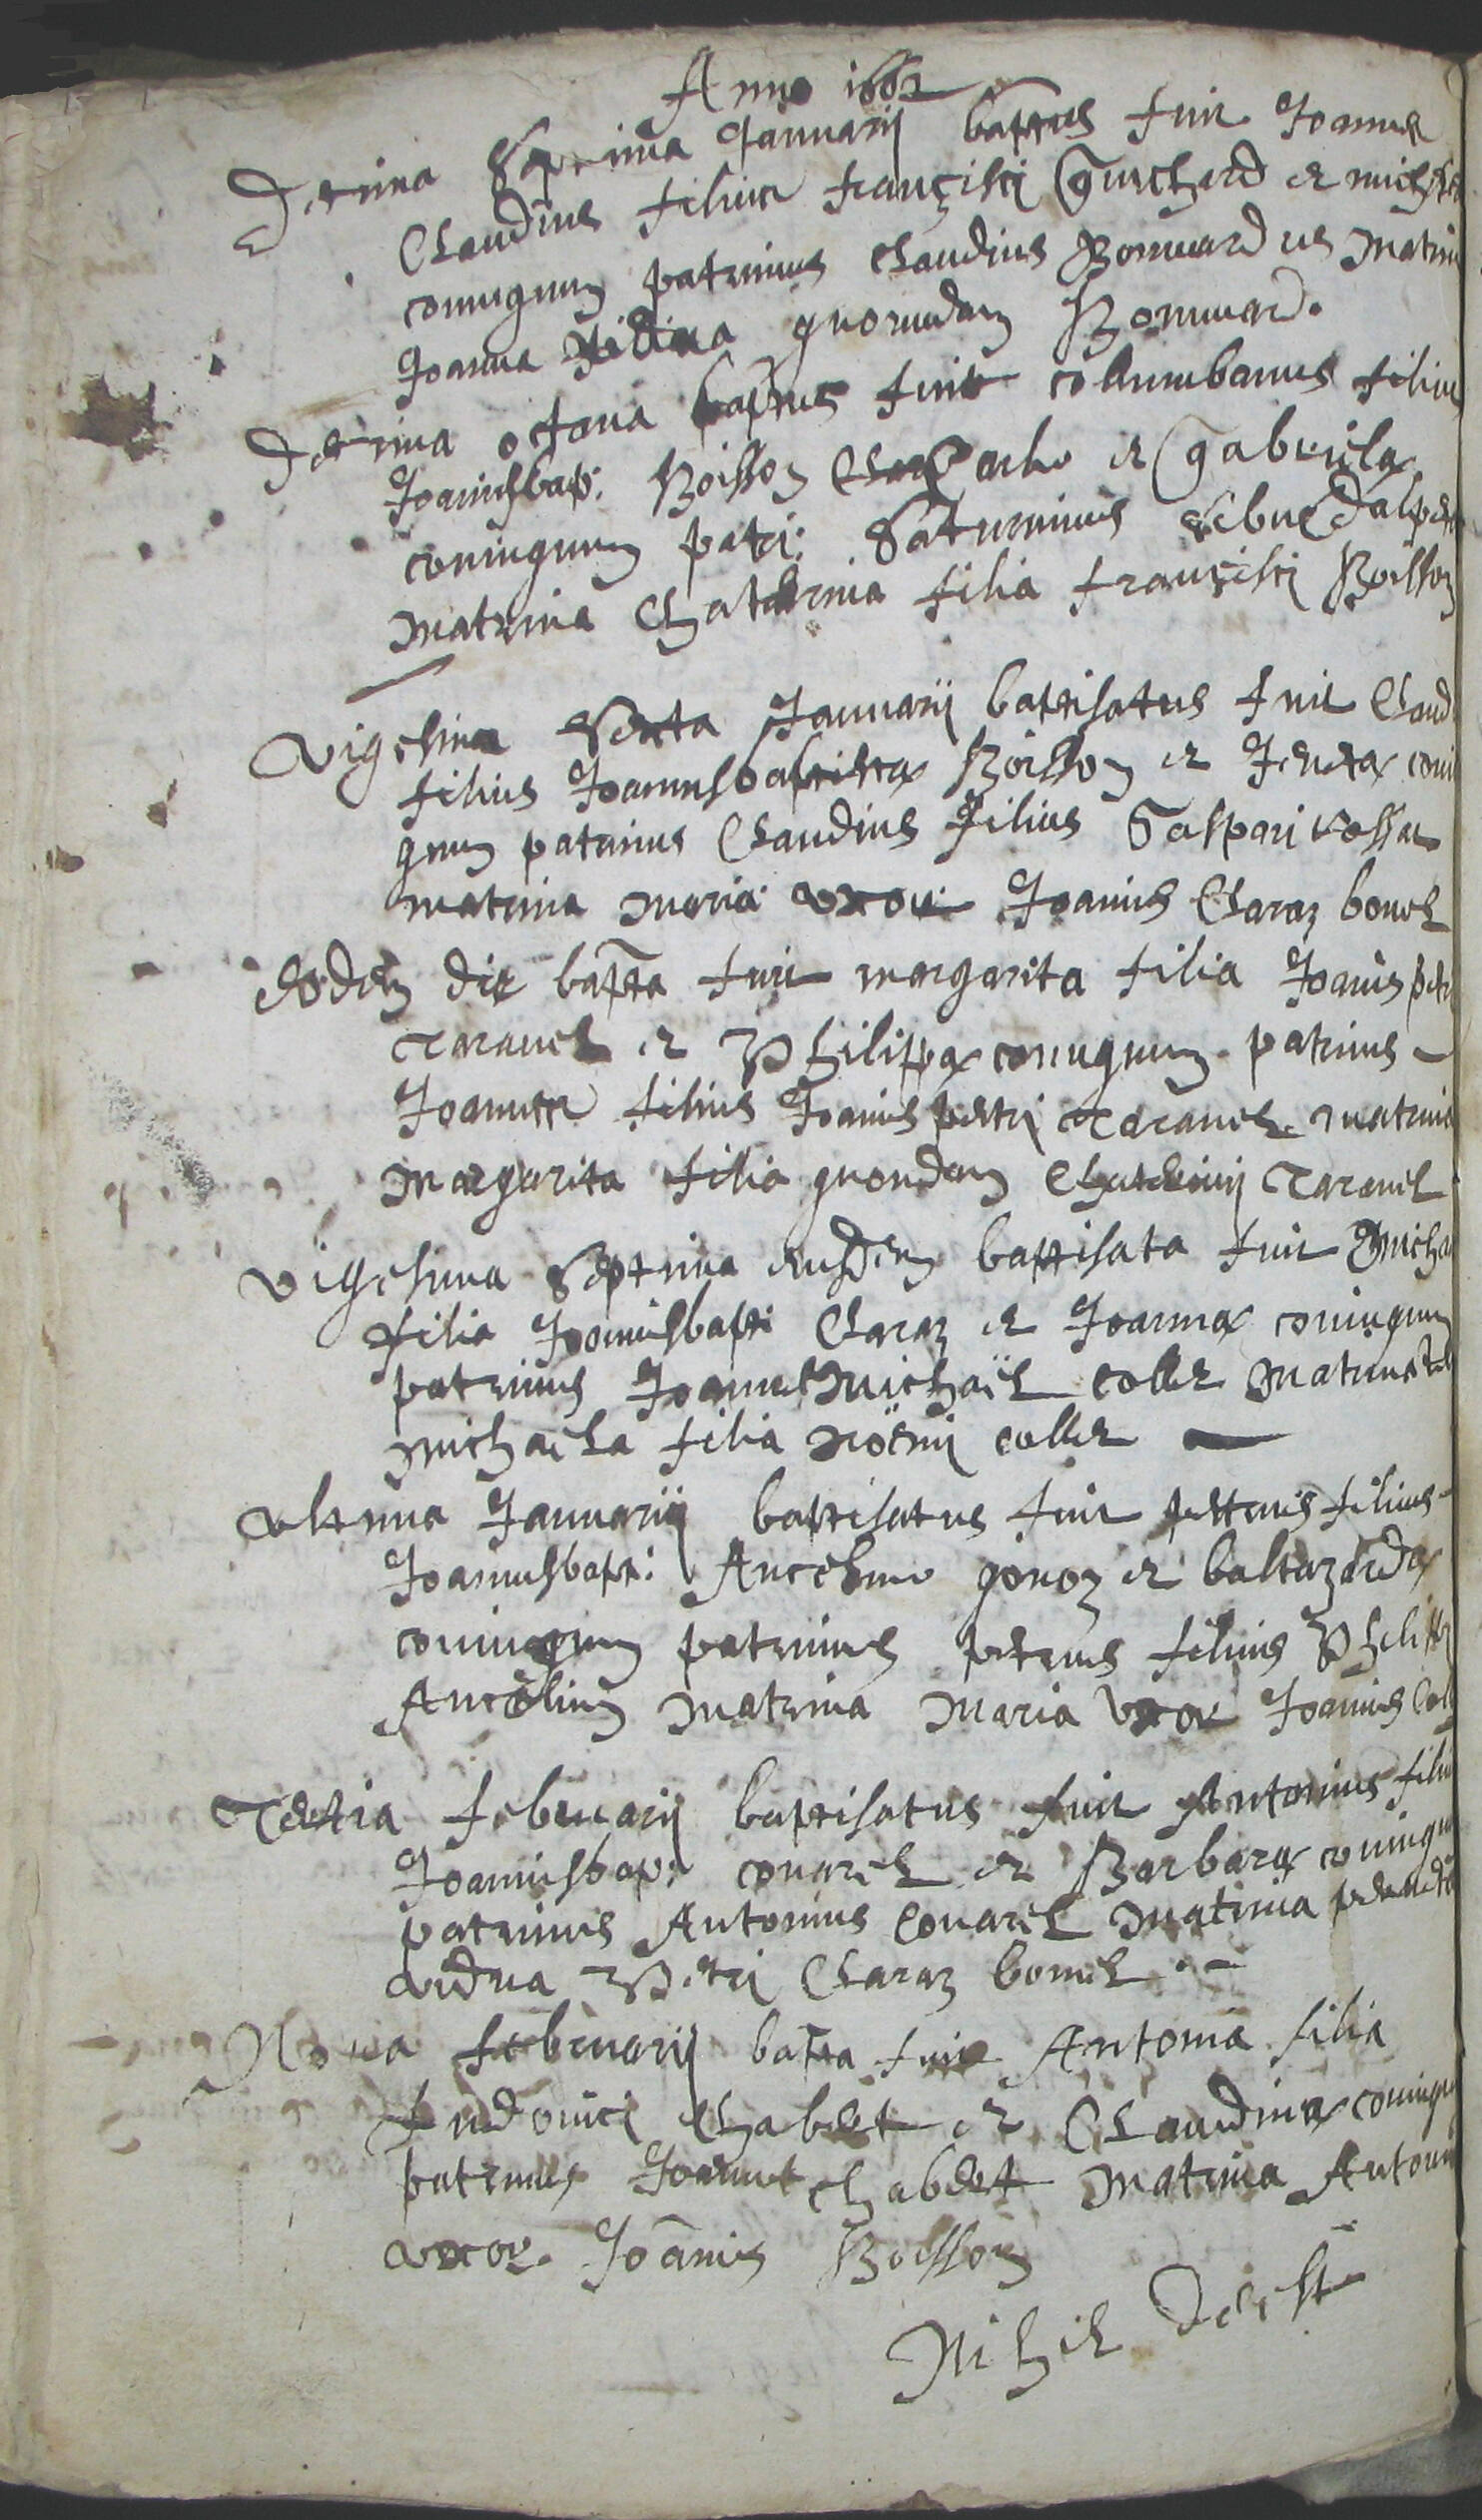 Anno 1662
Decima Septima Januarij baptus fuit Joannes
Claudius filius francisci Guichard et
coniugum patrinus Claudius Bonnardus Matrin
Joanna quorumdam Bonnard.
Decima octava baptus fuit collumbanus filius
Joannisbap: Boisson et Gabriela
coniugum patri: Saturninus
Matrina Chaterina filia francisci Boisson
Vigesima Sexta Januarij baptisatus fuit Claud
filius Joannisbaptistæ Boisson et coni
gum patrinus Claudius filius Gaspari
matrina Maria uxor Joannis Claraz bonel
Eodem die bapta fuit margarita filia Joannis petri
Taravel et Philipæ coniugum patrinus
Joannes filius Joannis petri Taravel matrina
Margarita filia quondam Taravel
Vigesima Septima eiusdem baptisata fuit Micha
filia Joannisbapti Claraz et Joannæ coniugum
patrinus Joannes Michaël collet Matrina
Michaela filia Noëmi collet
Ultima Januarij baptisatus fuit petrus filius
Joannisbapt: Ancelmo et baltazardæ
coniugum patrinus petrus filius Philippi
Ancelmo Matrina Maria Uxor Joannis
Tertia februarij baptisatus fuit Antonius filiu
Joannisbap: couarel et Barbaræ coniugu
patrinus Antonius Couarel Matrina
vidua Petri Claraz bonel
Nona februarij bapta fuit Antonia filia
Ludovici Chabert et Claudinæ coniugu
patrinus Joannes chabert Matrina Antonia
uxor Joannis Boisson
Nihil deest